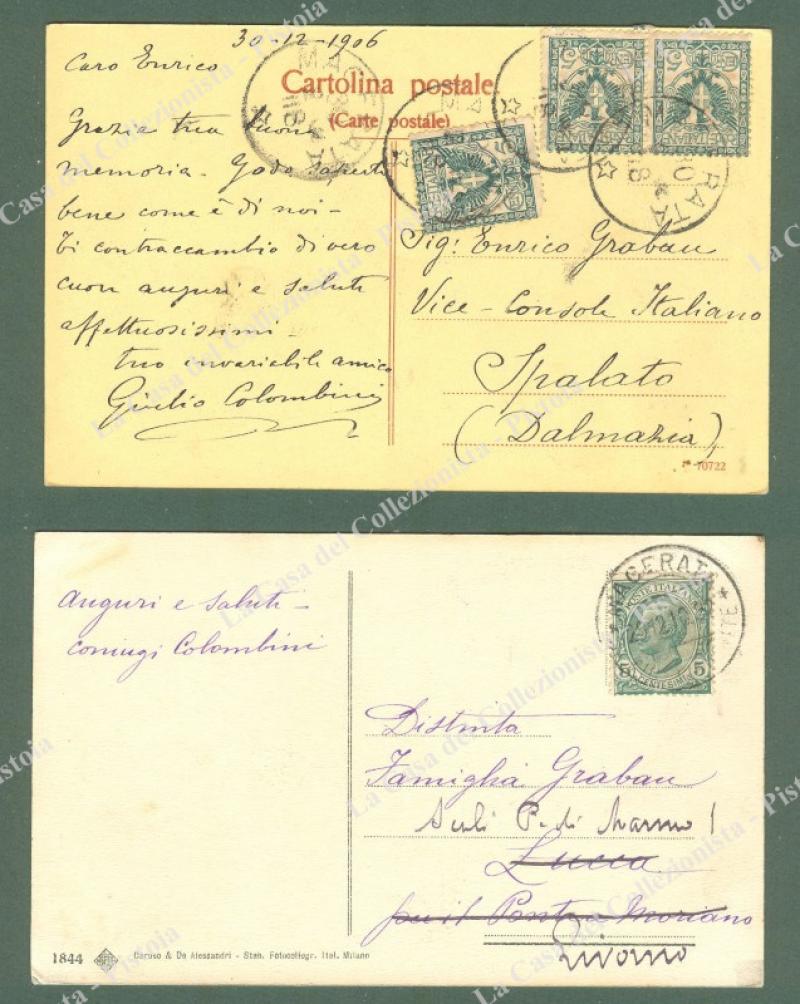 30-12-1906
Caro Enrico
Grazie tua buona
memoria. Godo saperti
bene come è di noi -
Ti contraccambio di vero
cuore auguri e saluti
affettuosissimi -
tuo invariabile amico
Giulio Colombini
Cartolina postale.
(Carte postale)
MACERATA
Sig: Enrico Grabau
Vice-Console Italiano
Spalato
(Dalmazia)
70722
Auguri e saluti -
coniugi Colombini
MACERATA
POSTE ITALIANE
5 CENTESIMI 5
Distinta
Famiglia Grabau
Scali P. di Marmo 1
Lucca
per il Ponte a Moriano
Livorno
1844
Caruso & De Alessandri - Stab. Fotocollogr. Ital. Milano
La Casa del Collezionista - Pistoia